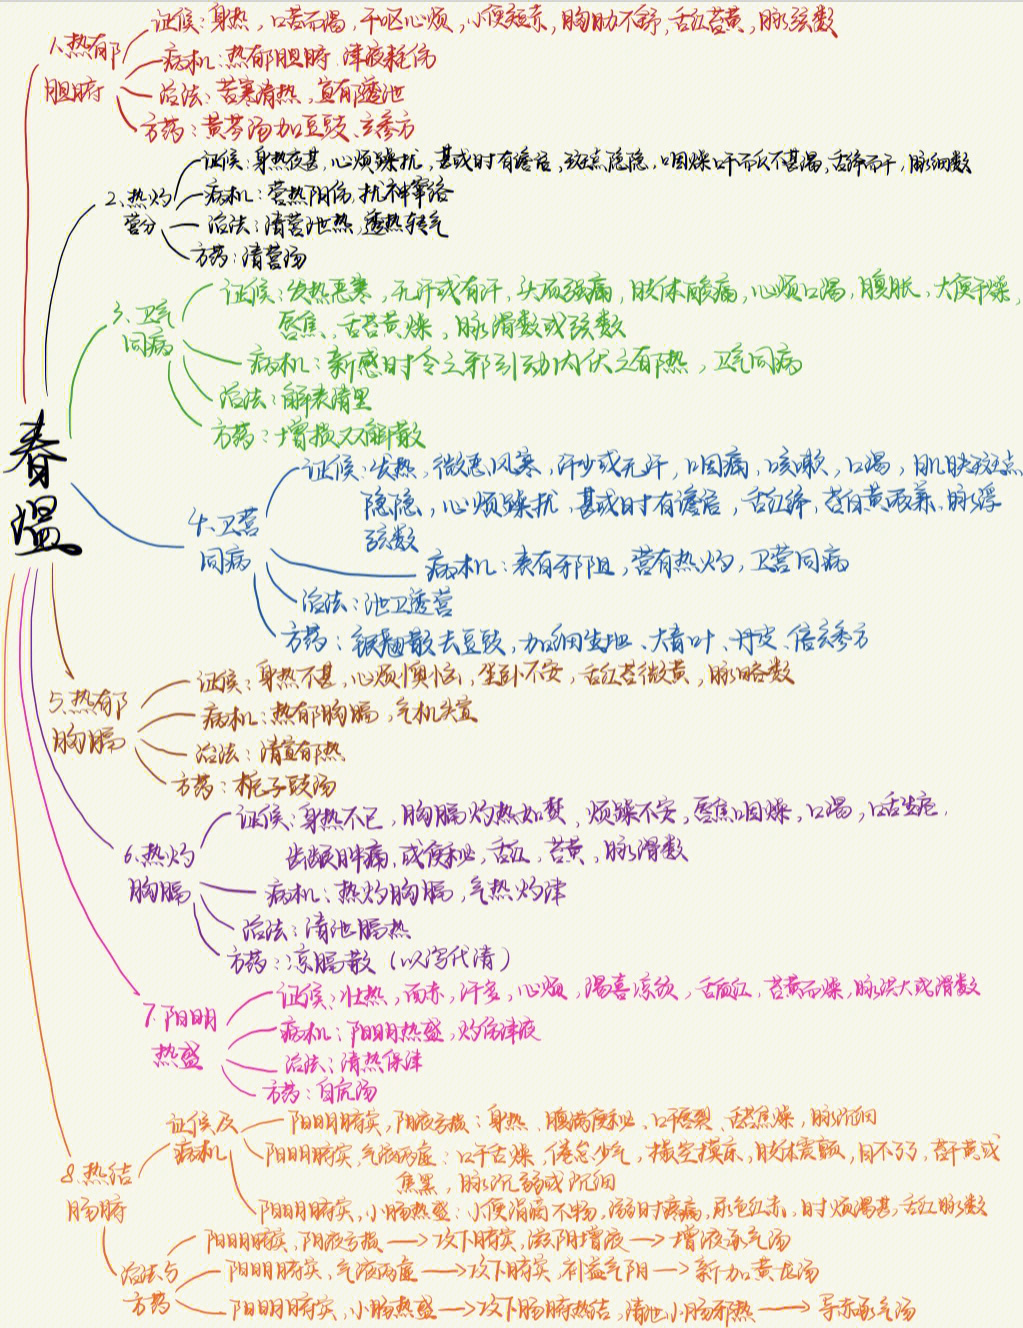 春温
1.热郁
胆腑
证候：身热，口苦而渴，干呕心烦，小便短赤，胸胁不舒，舌红苔黄，脉弦数
病机：热郁胆腑 津液耗伤
治法：苦寒清热，宣郁透泄
方药：黄芩汤加豆豉、玄参方
2.热灼
营分
证候：身热夜甚，心烦躁扰，甚或时有谵语，斑点隐隐，咽燥口干而反不甚渴，舌绛而干，脉细数
病机：营热阴伤，扰神窜络
治法：清营泄热，透热转气
方药：清营汤
3.卫气
同病
证候：发热恶寒，无汗或有汗，头项强痛，肢体酸痛，心烦口渴，腹胀，大便干燥，
唇焦，舌苔黄燥，脉滑数或弦数
病机：新感时令之邪引动内伏之郁热，卫气同病
治法：解表清里
方药：增损双解散
4.卫营
同病
证候：发热，微恶风寒，汗少或无汗，咽痛，咳嗽，口渴，肌肤斑点
隐隐，心烦躁扰，甚或时有谵语，舌红绛，苔白黄两兼，脉浮
弦数
病机：表有邪阻，营有热灼，卫营同病
治法：泄卫透营
方药：银翘散去豆豉，加细生地、大青叶、丹皮、倍玄参方
5.热郁
胸膈
证候：身热不甚，心烦懊恼，坐卧不安，舌红苔微黄，脉略数
病机：热郁胸膈，气机失宣
治法：清宣郁热
方药：栀子豉汤
6.热灼
胸膈
证候：身热不已，胸膈灼热如焚，烦躁不安，唇焦咽燥，口渴，口舌生疮，
齿龈肿痛，或便秘，舌红，苔黄，脉滑数
病机：热灼胸膈，气热灼津
治法：清泄膈热
方药：凉膈散（以泻代清）
7.阳明
热盛
证候：壮热，面赤，汗多，心烦，渴喜凉饮，舌质红，苔黄而燥，脉洪大或滑数
病机：阳明热盛，灼伤津液
治法：清热保津
方药：白虎汤
8.热结
肠腑
证候及
病机
阳明腑实，阴液亏损：身热、腹满便秘、口干唇裂、舌苔焦燥，脉沉细
阳明腑实，气液两虚：口干舌燥，倦怠少气，撮空摸床，肢体震颤，目不了了，苔干黄或
焦黑，脉沉弱或沉细
阳明腑实，小肠热盛：小便涓滴不畅，溺时疼痛，尿色红赤，时烦渴甚，舌红脉数
治法与
方药
阳明腑实，阴液亏损→攻下腑实，滋阴增液→增液承气汤
阳明腑实，气液两虚→攻下腑实，补益气阴→新加黄龙汤
阳明腑实，小肠热盛→攻下肠腑热结，清泄小肠邪热→导赤承气汤